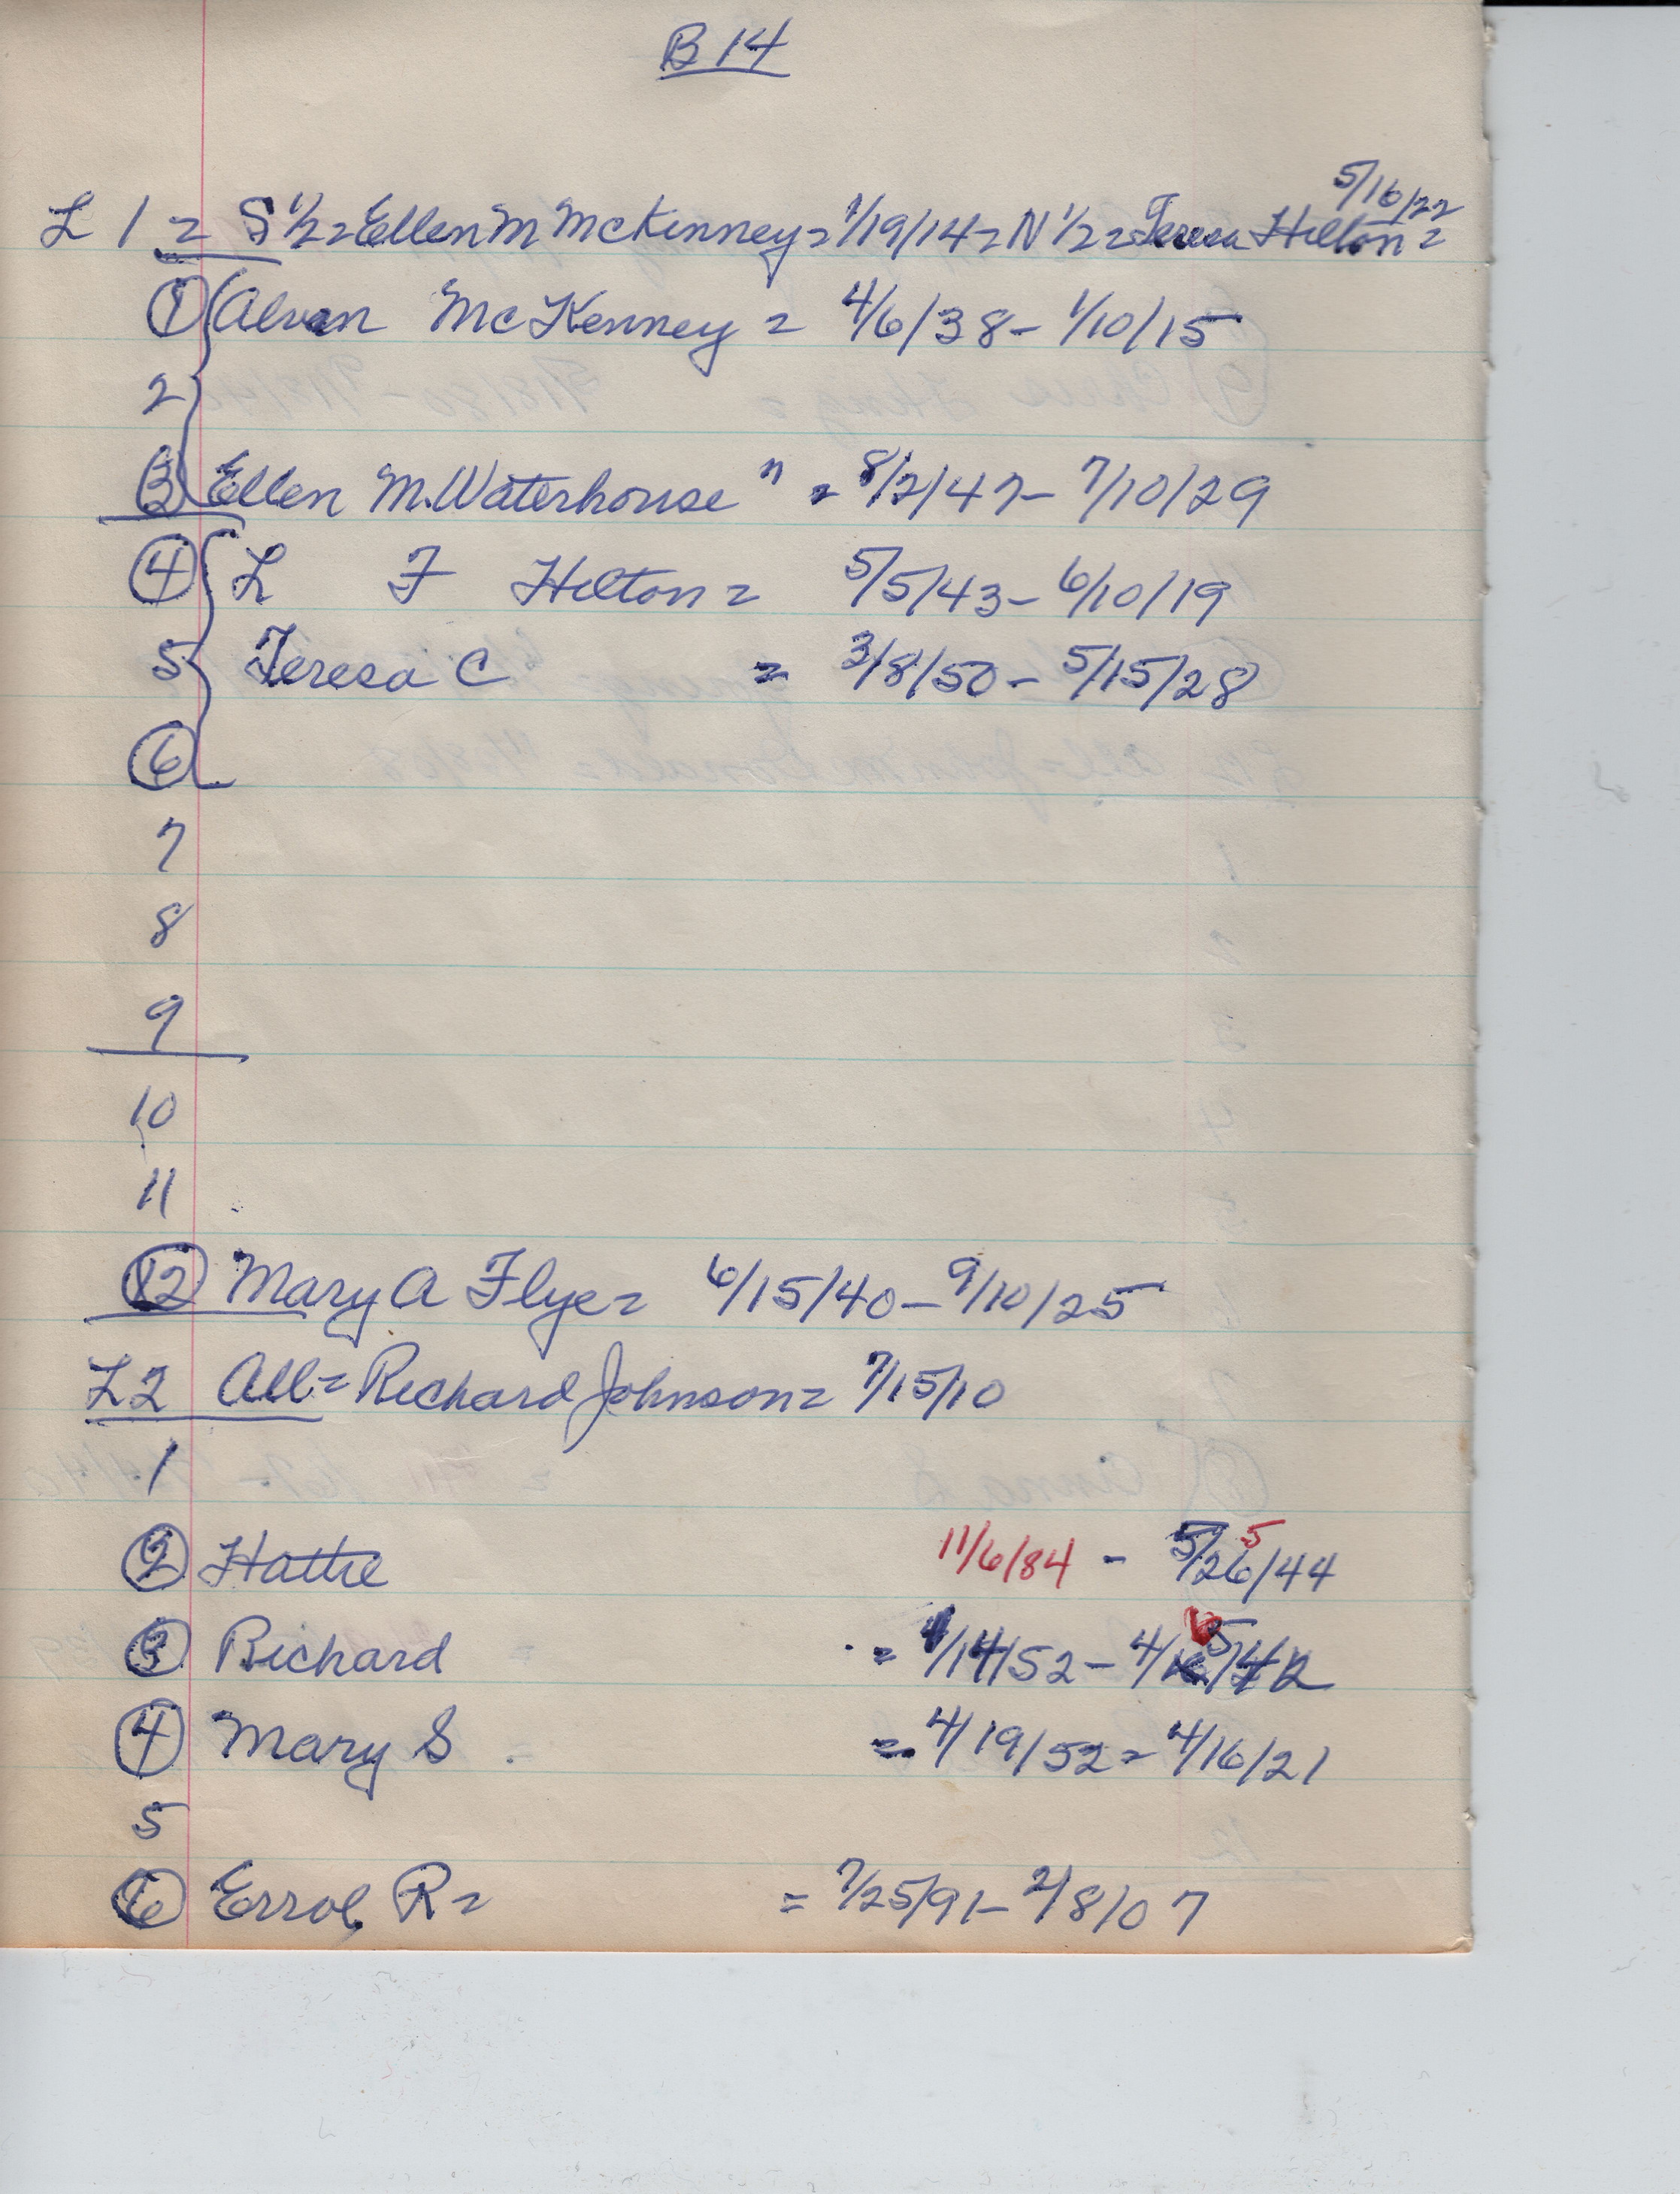 B 14
L 1 = S 1/2 = Ellen M McKinney = 1/19/14 = N 1/2 = Teresa Hilton = 5/16/22
1 Alvan McKenney = 4/6/38 - 1/10/15
2
3 Ellen M. Waterhouse " = 8/2/47 - 7/10/29
4 L F Hilton = 5/5/43 - 6/10/19
5 Teresa C = 3/8/50 - 5/15/28
6
7
8
9
10
11
12 Mary A Flye = 6/15/40 - 9/10/25
L2 All = Richard Johnson = 7/15/10
1
2 Hattie 11/6/84 - 5/26/44 5
3 Richard = 4/14/52 - 4/ 5/42
4 Mary S = 4/19/52 = 4/16/21
5
6 Errol R = = 7/25/91 - 2/8/07